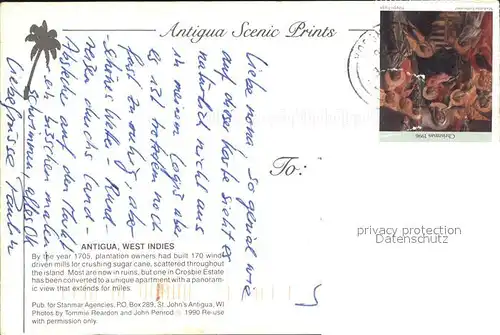 Antigua Scenic Prints
Liebe nona! So genial wie
auf dieser Karte sieht es
natürlich nicht aus
in meinem Logis aber
es ist trotzdem noch
fast zu ruhig, aber
schönes Wetter - Rund-
reisen durchs Land -
auf den Markt
ein bisschen malen
schwimmen, alles OK
Liebe Grüsse
To:
Christmas 1996
privacy protection
Datenschutz
ANTIGUA, WEST INDIES
By the year 1705, plantation owners had built 170 wind
driven mills for crushing sugar cane, scattered throughout
the island. Most are now in ruins, but one in Crosbie Estate
has been converted to a unique apartment with a panoram-
ic view that extends for miles.
Pub. for Stanmar Agencies, P.O. Box 289, St. John's Antigua, WI
Photos by Tommie Reardon and John Penrod © 1990 Re-use
with permission only.